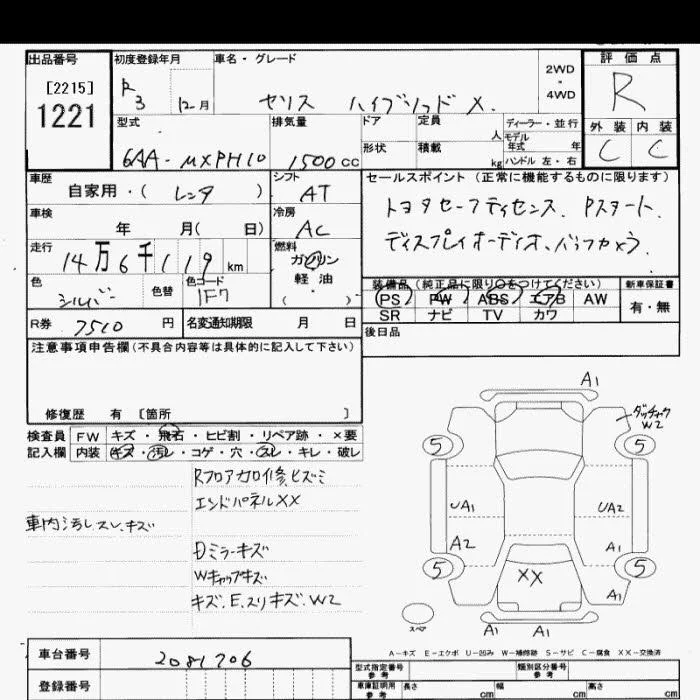 出品番号
[2215]
1221
初度登録年月
R 3 12月
車名・グレード
ヤリス ハイブリッド X.
2WD
・
4WD
評価点
R
外装 内装
C C
型式
6AA-MXPH10
排気量
1500cc
ドア
形状
定員 人
積載 kg
ディーラー・並行
モデル
年式 年
ハンドル 左・右
車歴
自家用・( レンタ )
シフト
AT
車検
年 月( 日)
冷房
AC
走行
14万6千119km
燃料
ガソリン
軽油
( ・ )
色
シルバー
色替
色コード
1F7
R券 7510 円
名変通知期限 月 日
セールスポイント(正常に機能するものに限ります)
トヨタセーフティセンス、Pスタート、
ディスプレイオーディオ、バックカメラ.
装備品(純正品に限り○をつけてください)
PS PW ABS エアB AW
SR ナビ TV カワ
新車保証書
有・無
後日品
注意事項申告欄(不具合内容等は具体的に記入して下さい)
修復歴 有 [箇所 ]
検査員
記入欄
FW キズ・飛石・ヒビ割・リペア跡・×要
内装 キズ・汚レ・コゲ・穴・スレ・キレ・破レ
車内汚レスレ、キズ
エンドパネルXX
Dミラーキズ
Wキャップキズ
キズ、E、スリキズ、W2
A1
W2
5 5
UA1 UA2
A2 A1
5 5
XX
A1
スペア
A1 A1
A-キズ E-エクボ U-凹み W-補修跡 S-サビ C-腐食 XX-交換済
車台番号
2081706
登録番号
型式指定番号
参考
類別区分番号
参考
車庫証明用
参考
長さ cm
幅 cm
高さ cm